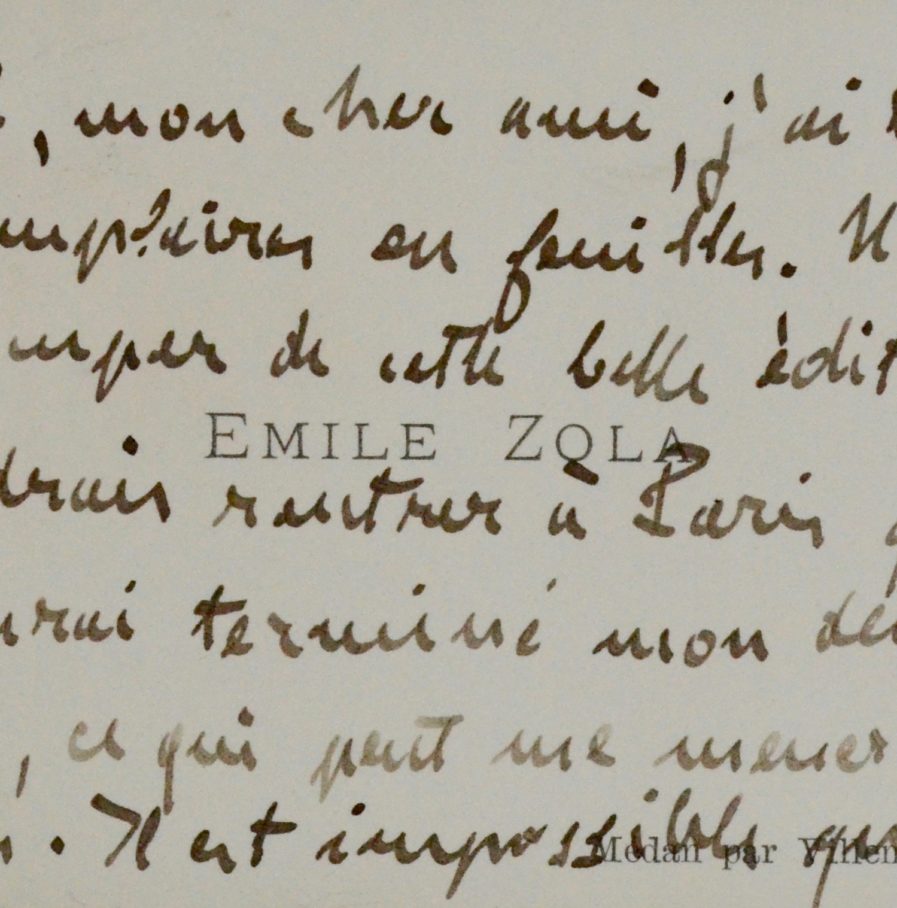 , mon cher ami, j'ai
mplaires en feuilles.
uper de cette belle édit
EMILE ZOLA
drais rentrer à Paris
urai terminé mon dé
, ce qui peut me mener
. Il est impossible que
Médan par Villen